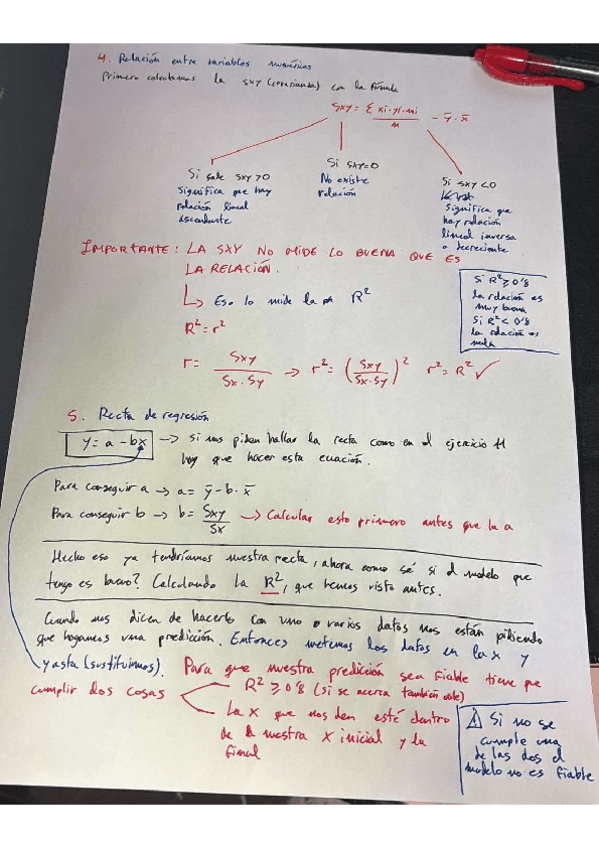 4. Relación entre variables numéricas
Primero calculamos la sxy (covarianza) con la fórmula
Sxy = Σ xi·yi·ni / n - ȳ·x̄
Si sale sxy>0
significa que hay
relación lineal
ascendente
Si sxy=0
No existe
relación
Si sxy<0
significa que
hay relación
lineal inversa
o decreciente
IMPORTANTE: LA SXY NO MIDE LO BUENA QUE ES
LA RELACIÓN.
↳ Eso lo mide la R²
R²=r²
r= Sxy / Sx·Sy → r²= (Sxy / Sx·Sy)² r²=R² ✓
Si R²≥0'8
la relación es
muy buena
Si R²<0'8
la relación es
mala
5. Recta de regresión
y=a-bx → si nos piden hallar la recta como en el ejercicio 11
hay que hacer esta ecuación.
Para conseguir a → a= ȳ-b·x̄
Para conseguir b → b= Sxy / Sx → Calcular esto primero antes que la a
Hecho eso ya tendríamos nuestra recta, ahora como sé si el modelo que
tengo es bueno? Calculando la R², que hemos visto antes.
Cuando nos dicen de hacerlo con uno o varios datos nos están pidiendo
que hagamos una predicción. Entonces metemos los datos en la x y
y asta (sustituimos). Para que nuestra predicción sea fiable tiene que
cumplir dos cosas
R²≥0'8 (si se acerca también vale)
La x que nos den esté dentro
de la nuestra x inicial y la
final
⚠ Si no se
cumple una
de las dos el
modelo no es fiable